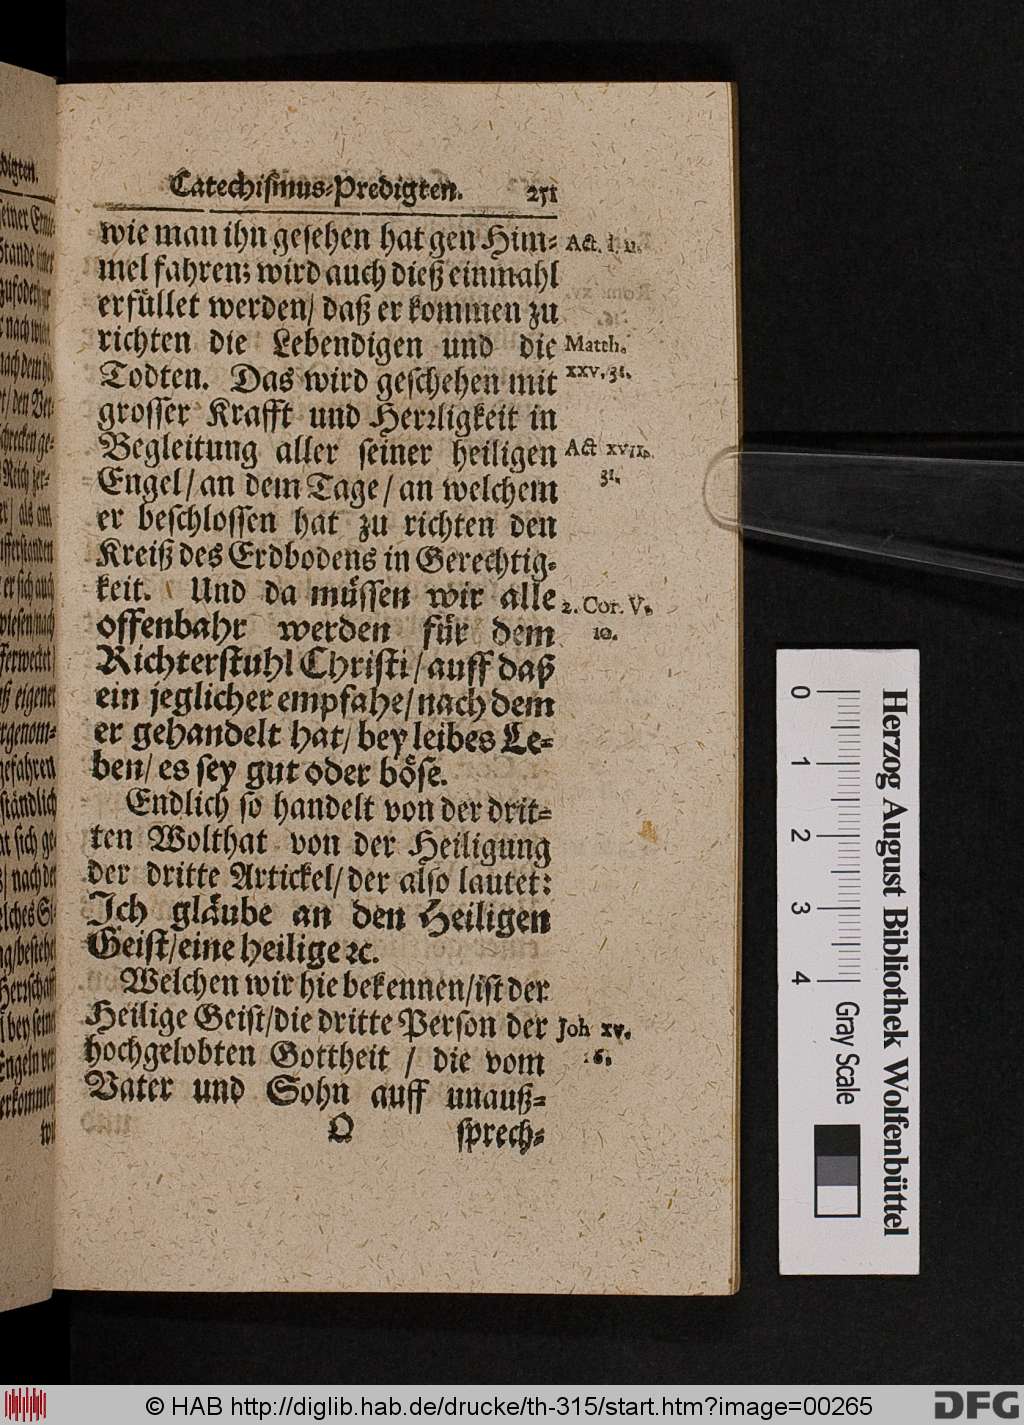 Catechismus-Predigten. 251
wie man ihn gesehen hat gen Him-
mel fahren; wird auch dieß einmahl
erfüllet werden/ daß er kommen zu
richten die Lebendigen und die
Todten. Das wird geschehen mit
grosser Krafft und Herrligkeit in
Begleitung aller seiner heiligen
Engel/ an dem Tage/ an welchem
er beschlossen hat zu richten den
Kreiß des Erdbodens in Gerechtig-
keit. Und da müssen wir alle
offenbahr werden für dem
Richterstuhl Christi/ auff daß
ein jeglicher empfahe/ nach dem
er gehandelt hat/ bey leibes Le-
ben/ es sey gut oder böse.
Endlich so handelt von der drit-
ten Wolthat von der Heiligung
der dritte Artickel/ der also lautet:
Ich gläube an den Heiligen
Geist/ eine heilige ꝛc.
Welchen wir hie bekennen/ ist der
Heilige Geist/ die dritte Person der
hochgelobten Gottheit / die vom
Vater und Sohn auff unauß-
Q sprech-
Act. I. 11.
Matth.
XXV. 31.
Act XVII.
31.
2. Cor. V.
10.
Joh XV.
26.
0 1 2 3 4
Gray Scale
Herzog August Bibliothek Wolfenbüttel
© HAB http://diglib.hab.de/drucke/th-315/start.htm?image=00265
DFG